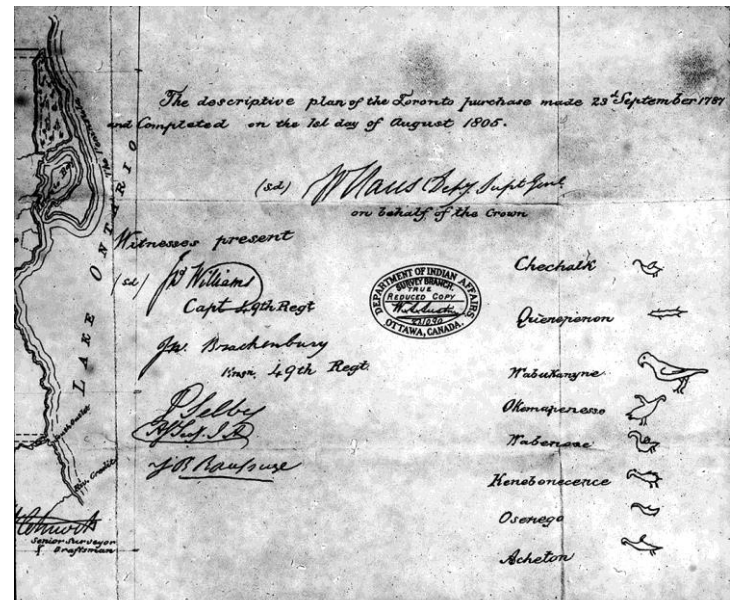 The descriptive plan of the Toronto purchase made 23d September 1787
and Completed on the 1st day of August 1805.
(sd) W Claus Depy Supt Genl
on behalf of the Crown
Witnesses present
(sd) Jas Williams
Capt 49th Regt
Jno. Brackenbury
Ensn. 49th Regt.
P Selby
J B Rousseau
DEPARTMENT OF INDIAN AFFAIRS
SURVEY BRANCH.
TRUE
REDUCED COPY
OTTAWA, CANADA.
Chechalk
Quenepenon
Wabukanyne
Okemapenesse
Wabenose
Kenebonecence
Osenego
Acheton
LAKE ONTARIO
The Peninsula
Bay
Senior Surveyor
& Draftsman